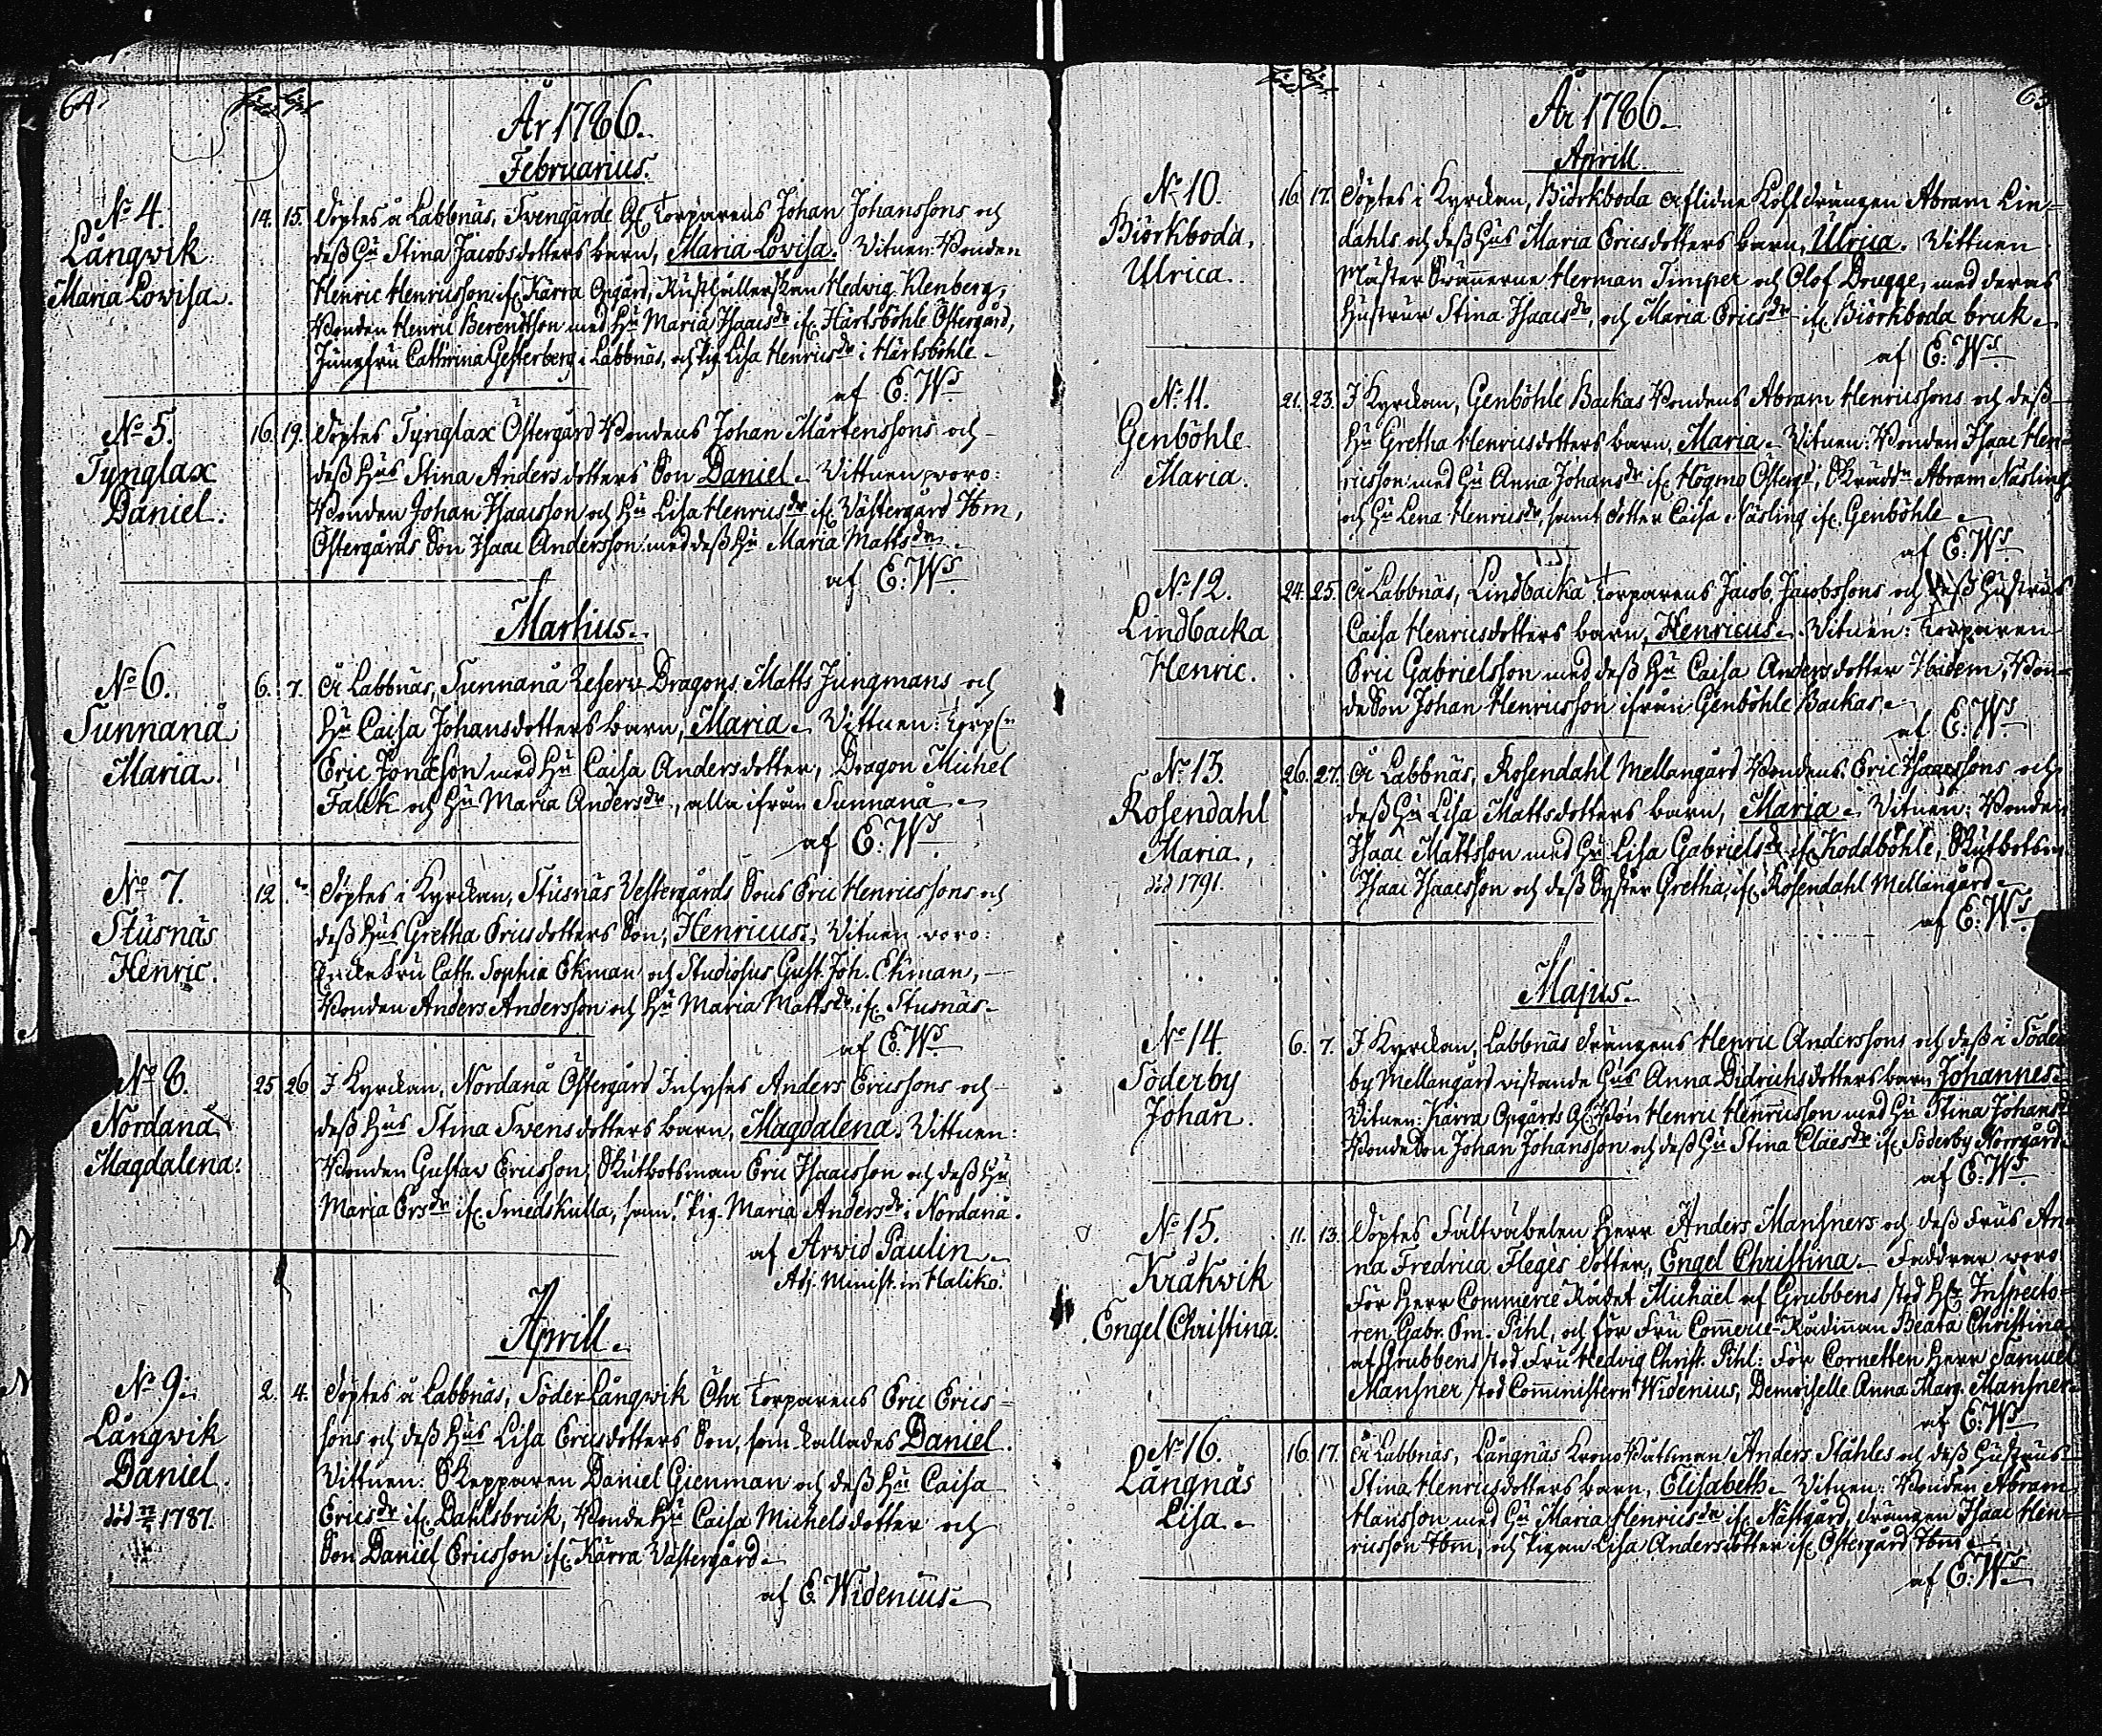 64.
År 1786.
Februarius.
No 4.
Långwik
Maria Lovisa.
14. 15. Döptes å Labbnäs, Torparens Johan Johanssons och
deß Hu Stina Jacobsdotters barn, Maria Lovisa. Vitnen: Bonden
Henric Henricsson if. Kärra Opgård, Rusthållerskan Hedvig Klenberg,
Bonden Henric Berendtson med Hu Maria Isaacsdr if. Härtsböhle Östergård,
Jungfru Cathrina Gesterberg i Labbnäs, och Pig. Lisa Henricsdr i Härtsböhle.
af E: Ws
No 5.
Tynglax
Daniel.
16. 19. Döptes Tynglax Östergård Bondens Johan Mårtenssons och
deß Hus Stina Andersdotters Son Daniel. Vittnen voro:
Bonden Johan Isaacsson och Hu Lisa Henricsdr if. Västergård Ibm,
Östergårds Son Isaac Andersson med deß Hu Maria Mattsdr.
af E: Ws.
Martius.
No 6.
Sunnanå
Maria.
6. 7. Å Labbnäs, Sunnanå Reserv Dragons Matts Jungmans och
Hu Caisa Johansdotters barn, Maria. Vittnen: Torp.
Eric Jonæson med Hu Caisa Andersdotter, Dragon Michel
Falck och Hu Maria Andersdr., alla ifrån Sunnanå.
af E: Ws.
No 7.
Stusnäs
Henric.
12. Döptes i Kyrckan, Stusnäs Vestergårds Sons Eric Henricssons och
deß Hus Gretha Ericsdotters Son, Henricus. Vitnen voro:
Enckefru Cath. Sophia Ekman och Studiosus Gust. Joh. Ekman,
Bonden Anders Andersson och Hu Maria Mattsdr if. Stusnäs.
af E: Ws.
No 8.
Nordanå
Magdalena.
25. 26. I Kyrckan, Nordanå Östergård Inhyses Anders Ericssons och
deß Hus Stina Svensdotters barn, Magdalena. Vittnen:
Bonden Gustav Ericsson, Skutbotsman Eric Isaacsson och deß Hu
Maria Ersdr if. Smedskulla, samt Pig. Maria Andersdr i Nordanå.
af Arvid Paulin.
Adj. Minist. in Haliko.
Aprill.
No 9.
Långwik
Daniel.
död 1787.
2. 4. Döptes å Labbnäs, SöderLångwik Öhr Torparens Eric Erics-
sons och deß Hus Lisa Ericsdotters Son, som kallades Daniel.
Vittnen: Skepparen Daniel Gienman och deß Hu Caisa
Ericsdr if. Dahlsbruk, Bonde Hu Caisa Michelsdotter och
Son Daniel Ericsson if. Kärra Västergård.
af E. Widenius.
År 1786.
Aprill
No 10.
Biörkboda,
Ulrica.
16. 17. Döptes i Kyrckan, Biörkboda aflidne Kohldrängen Abram Lin-
dahls och deß Hus Maria Ericsdotters barn, Ulrica. Vittnen
Mäster Svännerne Herman Timper och Olof Drugge, med deras
Hustrur Stina Isaacsdr, och Maria Ericsdr if. Biörkboda bruk.
af E: Ws.
No 11.
Genböhle
Maria.
21. 23. I Kyrckan, Genböhle Backas Bondens Abram Henricssons och deß
Hu Gretha Henricsdotters barn, Maria. Vitnen: Bonden Isaac Hen-
ricsson med Hu Anna Johansdr if. Högmo Österg., Skrädd. Abram Näsling
och Hu Lena Henricsdr, samt dotter Caisa Näsling if. Genböhle.
af E: Ws
No 12.
Lindbacka
Henric.
24. 25. Å Labbnäs, Lindbacka Torparens Jacob Jacobssons och deß Hustrus
Caisa Henricsdotters barn, Henricus. Vitnen: Torparen
Eric Gabrielsson med deß Hu Caisa Andersdotter Ibidem, Bon-
deSon Johan Henricsson ifrån Genböhle Backas.
af E: Ws.
No 13.
Rosendahl
Maria,
död 1791.
26. 27. Å Labbnäs, Rosendahl Mellangård Bondens Eric Isaacssons och
deß Hu Lisa Mattsdotters barn, Maria. Vitnen: Bonden
Isaac Mattsson med Hu Lisa Gabrielsdr if. Koddböhle, Skutbotsm.
Isaac Isaacsson och deß Syster Gretha, if. Rosendahl Mellangård.
af E: Ws.
Majus.
No 14.
Söderby
Johan.
6. 7. I Kyrckan, Labbnäs drängens Henric Anderssons och deß i Söder-
by Mellangård vistande Hus Anna Didrichsdotters barn Johannes.
Vitnen: Kärra Opgårds Henric Henricsson med Hu Stina Johansdr
BondeSon Johan Johansson och deß Hu Stina Claesdr if. Söderby Norrgård.
af E: Ws.
No 15.
Kråkvik
Engel Christina.
11. 13. Döptes Fältväbelen Herr Anders Mansners och deß Frus An-
na Fredrica Fleges dotter, Engel Christina. Faddrar voro
För Herr Commerce Rådet Michael af Grubbens stod Hr Inspecto-
ren Gabr. Em. Pihl, och för Fru Commerce-Rådinnan Beata Christina
af Grubbens stod Fru Hedvig Christ. Pihl: För Cornetten Herr Samuel
Mansner stod Comministern Widenius, Demoiselle Anna Marg. Mansner.
af E: Ws
No 16.
Långnäs
Lisa.
16. 17. Å Labbnäs, Långnäs Krono Båtsman Anders Ståhles och deß Hustrus
Stina Henricsdotters barn, Elisabeth. Vitnen: Bonden Abram
Hansson med Hu Maria Henricsdr if. Nästgård, drängen Isaac Hen-
ricsson Ibm, och Pigan Lisa Andersdotter if. Östergård Ibm.
af E: Ws.